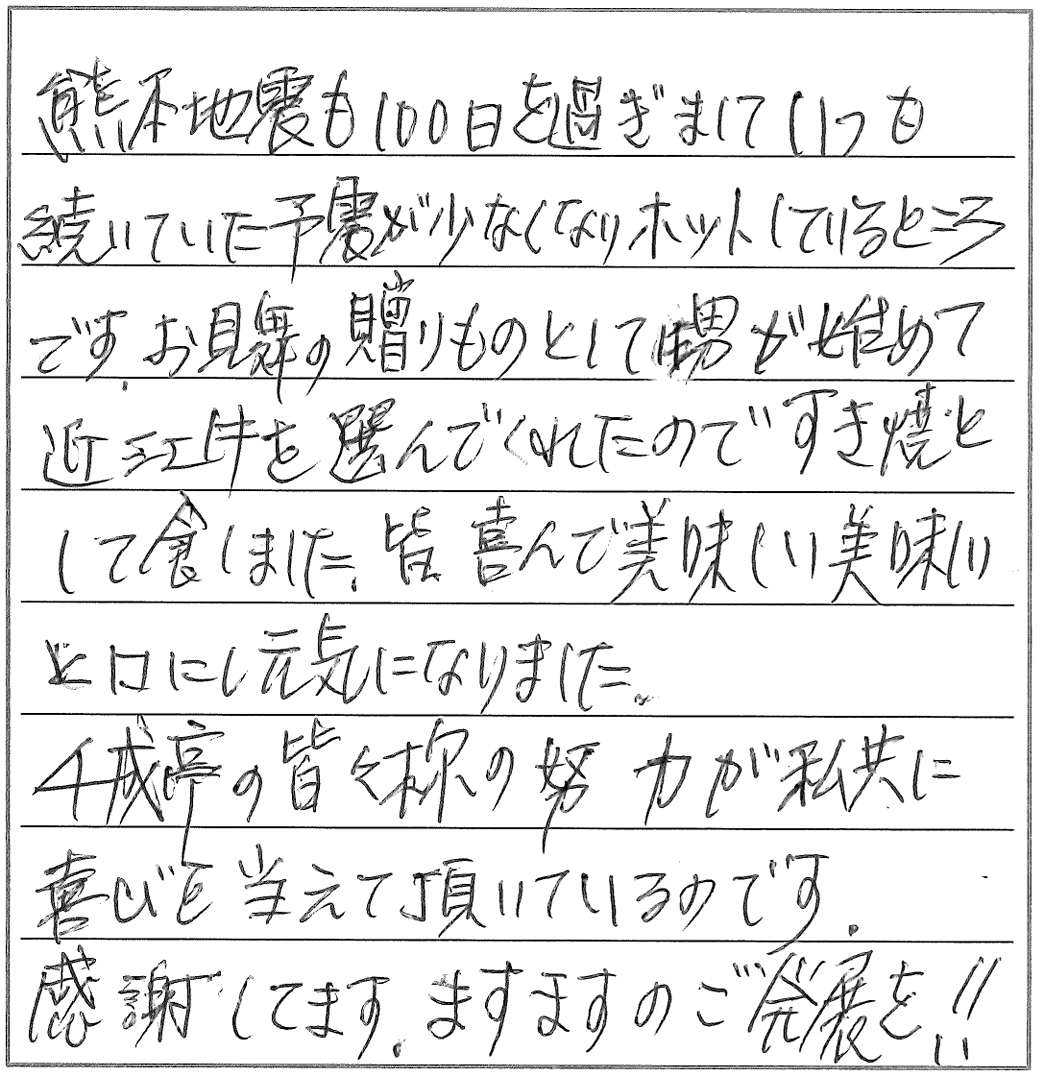 熊本地震も100日を過ぎましていつも
続いていた予震が少なくなりホットしているところ
です.お見舞の贈りものとして甥が始めて
近江牛を選んでくれたのですき焼と
して食しました.皆喜んで美味しい美味しい
と口にし元気になりました。
千成亭の皆々様の努力が私共に
喜びを当えて頂いているのです.
感謝してます.ますますのご発展を!!